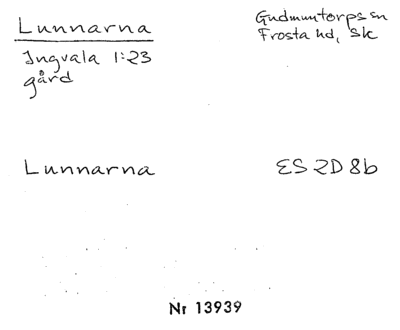 Lunnarna
Gudmuntorps sn
Frosta hd, Sk
Ingvala 1:23
gård
Lunnarna
ES 2D 8b
Nr 13939